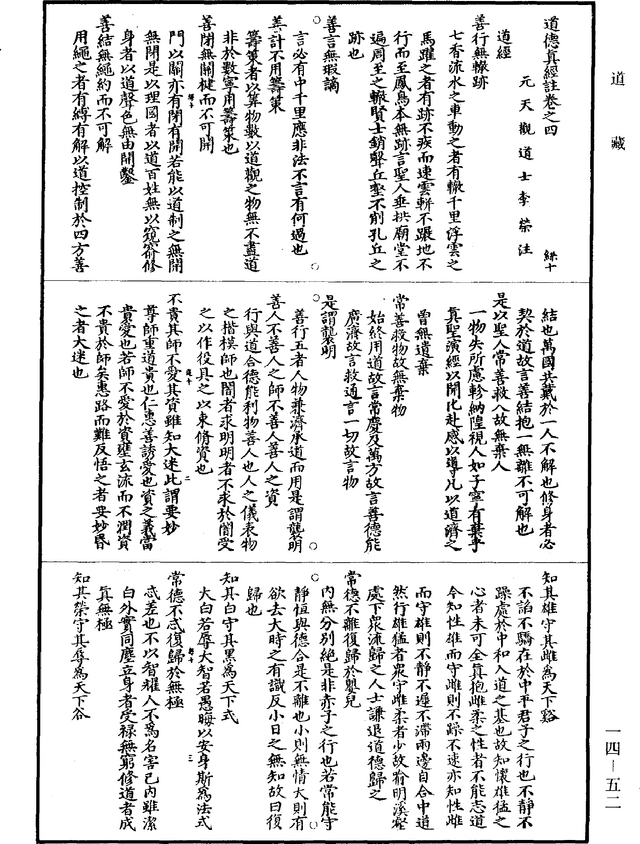 道藏
道德眞經註卷之四
元天觀道士李榮注　絲十
道經
善行無轍跡
七香流水之車動之者有轍千里浮雲之
馬躍之者有跡不疾而速雲軿不躡地不
行而至鳳鳥本無跡言聖人垂拱廟堂不
遍周至之轍賢士銷聲丘壑不削孔丘之
跡也
善言無瑕謫
言必有中千里應非法不言有何過也
善計不用籌策
籌策者以算物數以道觀之物無不盡道
非於數寧用籌策也
善閉無關楗而不可開
門以關亦有閉有開若能以道制之無開
無閉是以理國者以道百姓無以窺窬修
身者以道聲色無由開鑿
善結無繩約而不可解
用繩之者有縛有解以道控制於四方善
結也萬國共戴於一人不解也修身者必
契於道故言善結抱一無離不可解也
是以聖人常善救人故無棄人
一物失所慮軫納隍視人如子寧有棄乎
眞聖演經以開化赴感以導凡以道濟之
曾無遺棄
常善救物故無棄物
始終用道故言常慶及萬方故言善德能
廣濟故言救通言一切故言物
是謂襲明
善行五者人物兼濟承道而用是謂襲明
善人不善人之師不善人善人之資
行與道合德能利物善人也人之儀表物
之楷模師也闇者求明明者不求於闇受
之以作役具之以束脩資也
不貴其師不愛其資雖知大迷此謂要妙
尊師重道貴也仁惠善誘愛也資之義當
貴愛也若師不愛於資壅玄流而不潤資
不貴於師矣惠路而難反悟之者要妙昏
之者大迷也
知其雄守其雌爲天下谿
不諂不驕在於中平君子之行也不靜不
躁處於中和入道之基也故知懷雄猛之
心者未可全眞抱雌柔之性者不能志道
今知性雄而守雌則不躁不速亦知性雌
而守雄則不靜不遲不滯兩邊自合中道
然行雄猛者衆守雌柔者少故喻明溪壑
處下衆流歸之人士謙退道德歸之
常德不離復歸於嬰兒
內無分別絕是非赤子之行也若常能守
靜恒與德合是不離也小則無情大則有
欲去大時之有識反小日之無知故曰復
歸也
知其白守其黑爲天下式
大白若辱大智若愚晦以安身斯爲法式
常德不忒復歸於無極
忒差也不以智耀人不爲名害己內雖潔
白外實同塵立身者受祿無窮修道者成
眞無極
知其榮守其辱爲天下谷
一四—五二